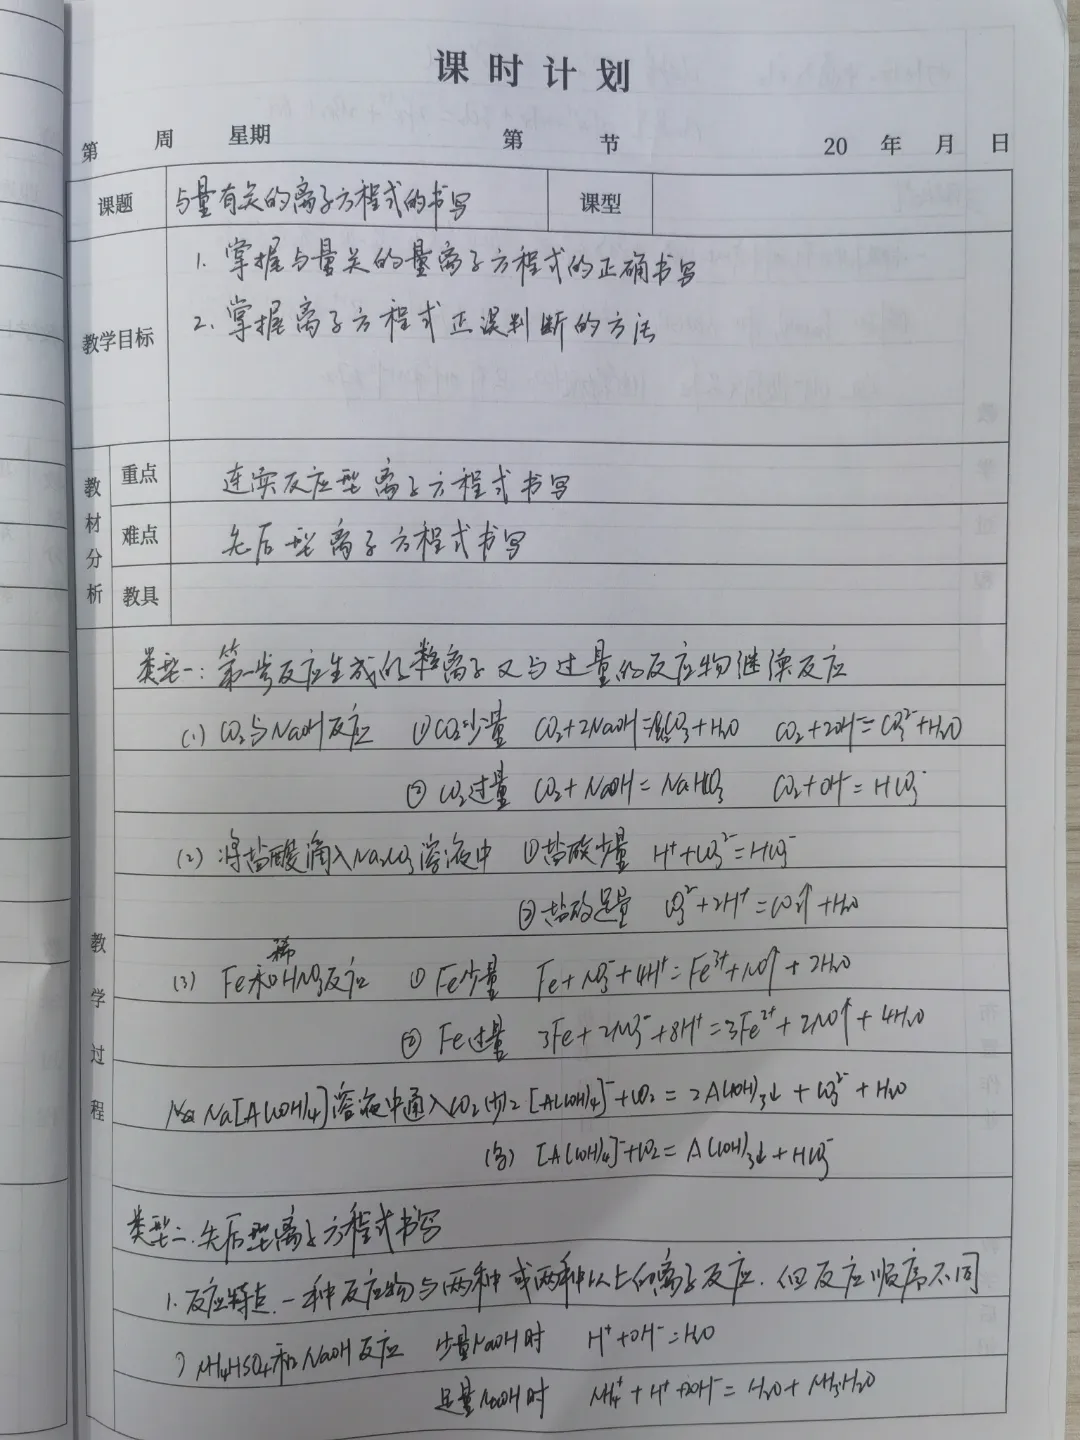 课时计划
第 周 星期 第 节 20 年 月 日
课题 与量有关的离子方程式的书写 课型
教学目标
1. 掌握与量关的量离子方程式的正确书写
2. 掌握离子方程式正误判断的方法
教材分析
重点 连续反应型离子方程式书写
难点 先后型离子方程式书写
教具
教学过程
类型一：第一步反应生成的离子又与过量的反应物继续反应
(1) CO₂与NaOH反应 ①CO₂少量 CO₂+2NaOH=Na₂CO₃+H₂O CO₂+2OH⁻=CO₃²⁻+H₂O
②CO₂过量 CO₂+NaOH=NaHCO₃ CO₂+OH⁻=HCO₃⁻
(2) 将盐酸滴入Na₂CO₃溶液中 ①盐酸少量 H⁺+CO₃²⁻=HCO₃⁻
②盐酸足量 CO₃²⁻+2H⁺=CO₂↑+H₂O
(3) Fe和稀HNO₃反应 ①Fe少量 Fe+NO₃⁻+4H⁺=Fe³⁺+NO↑+2H₂O
②Fe过量 3Fe+2NO₃⁻+8H⁺=3Fe²⁺+2NO↑+4H₂O
Na[Al(OH)₄]溶液中通入CO₂(少)2[Al(OH)₄]⁻+CO₂=2Al(OH)₃↓+CO₃²⁻+H₂O
(多) [Al(OH)₄]⁻+CO₂=Al(OH)₃↓+HCO₃⁻
类型二. 先后型离子方程式书写
1. 反应特点. 一种反应物与两种或两种以上的离子反应. 但反应顺序不同
NH₄HSO₄和NaOH反应 少量NaOH时 H⁺+OH⁻=H₂O
足量NaOH时 NH₄⁺+H⁺+2OH⁻=H₂O+NH₃·H₂O